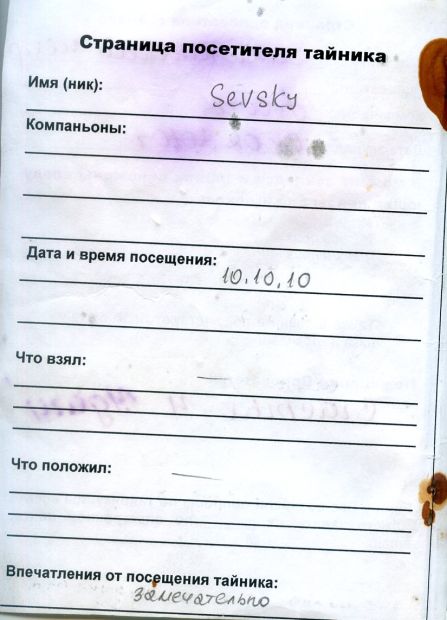 Страница посетителя тайника
Имя (ник):
Sevsky
Компаньоны:
Дата и время посещения:
10.10.10
Что взял:
—
Что положил:
—
Впечатления от посещения тайника:
замечательно